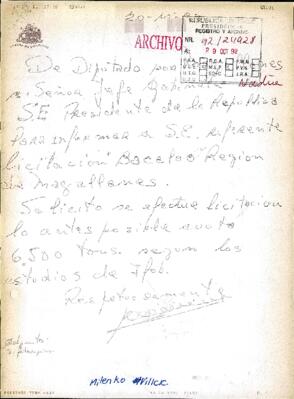 ARCHIVO
REPUBLICA DE CHILE
PRESIDENCIA
REGISTRO Y ARCHIVO
NR. 92/24928
A: 09 OCT 92
De Diputado por
a Señora Jefe Gabinete
S.E. Presidente de la Republica
Para informar a S.E. referente
licitacion Bacalao Region
de Magallanes.
Solicito se efectue licitacion
lo antes posible
6.500 tons. segun los
estudios de Ifop.
Respetuosamente
Milenko Vilicic